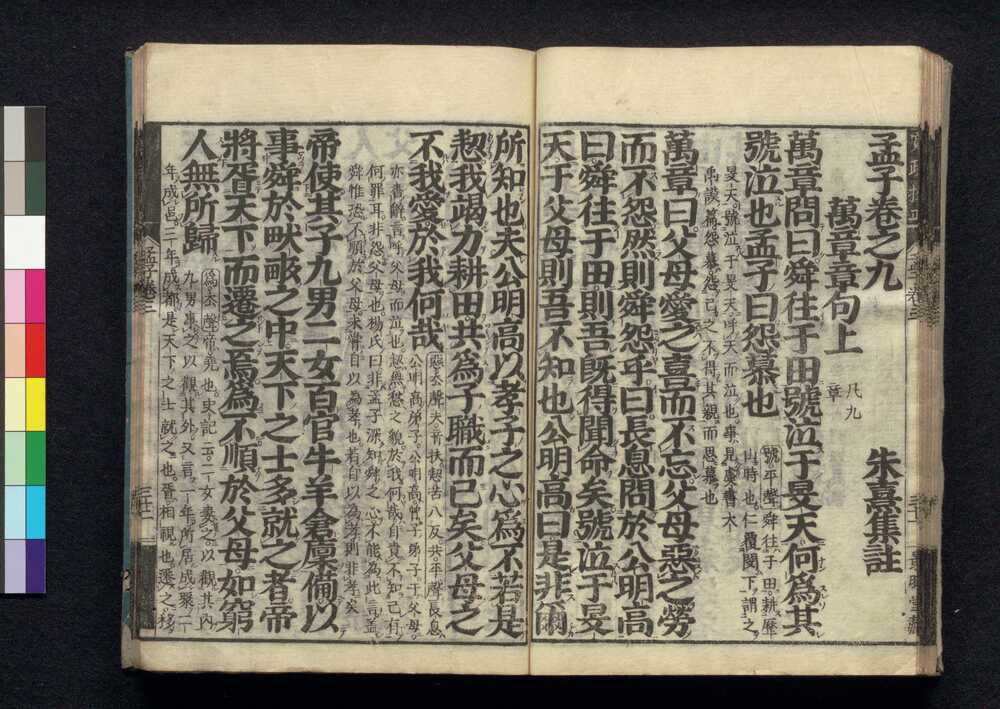 孟子卷之九
萬章章句上 凡九章 朱熹集註
萬章問曰舜往于田號泣于旻天何爲其
號泣也孟子曰怨慕也 號平聲舜往于田耕歷山時也仁覆閔下謂之
旻天號泣于旻天呼天而泣也事見虞書大
禹謨篇怨慕怨己之不得其親而思慕也
萬章曰父母愛之喜而不忘父母惡之勞
而不怨然則舜怨乎曰長息問於公明高
曰舜往于田則吾旣得聞命矣號泣于旻
天于父母則吾不知也公明高曰是非爾
所知也夫公明高以孝子之心爲不若是
恝我竭力耕田共爲子職而已矣父母之
不我愛於我何哉 惡去聲夫音扶恝苦八反共平聲長息公明高弟子公明高曾子弟子于父母
亦書辭言呼父母而泣也恝無愁之貌於我何哉自責不知己有
何罪耳非怨父母也楊氏曰非孟子深知舜之心不能爲此言蓋
舜惟恐不順於父母未嘗自以爲孝也若自以爲孝則非孝矣
帝使其子九男二女百官牛羊倉廩備以
事舜於畎畝之中天下之士多就之者帝
將胥天下而遷之焉爲不順於父母如窮
人無所歸 爲去聲帝堯也史記云二女妻之以觀其內九男事之以觀其外又言一年所居成聚二
年成邑三年成都是天下之士就之也胥相視也遷之移